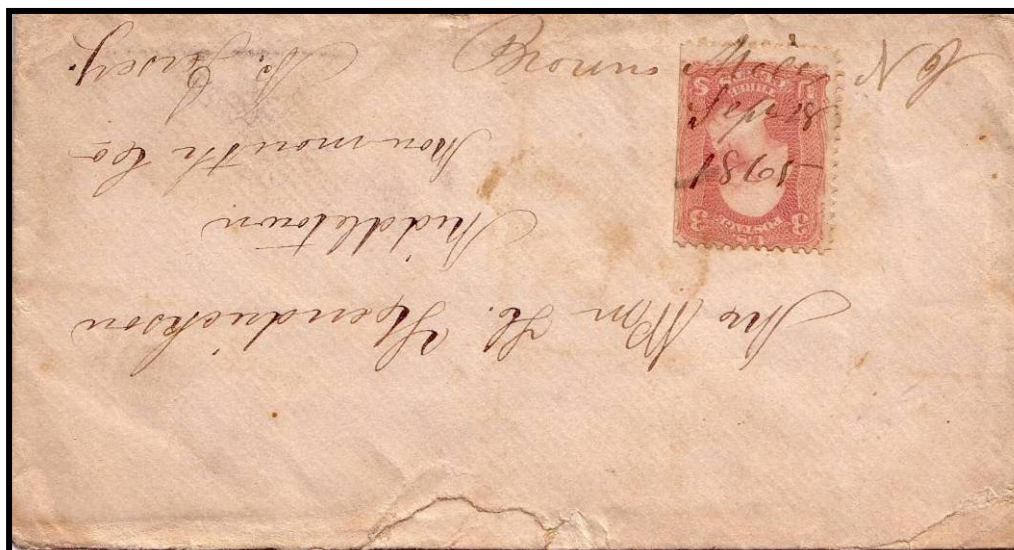 Browns Mills N J
Sep 18
1865
Mrs Wm H. Hendrickson
Middletown
Monmouth Co
N. Jersey.
U.S. POSTAGE
3 3